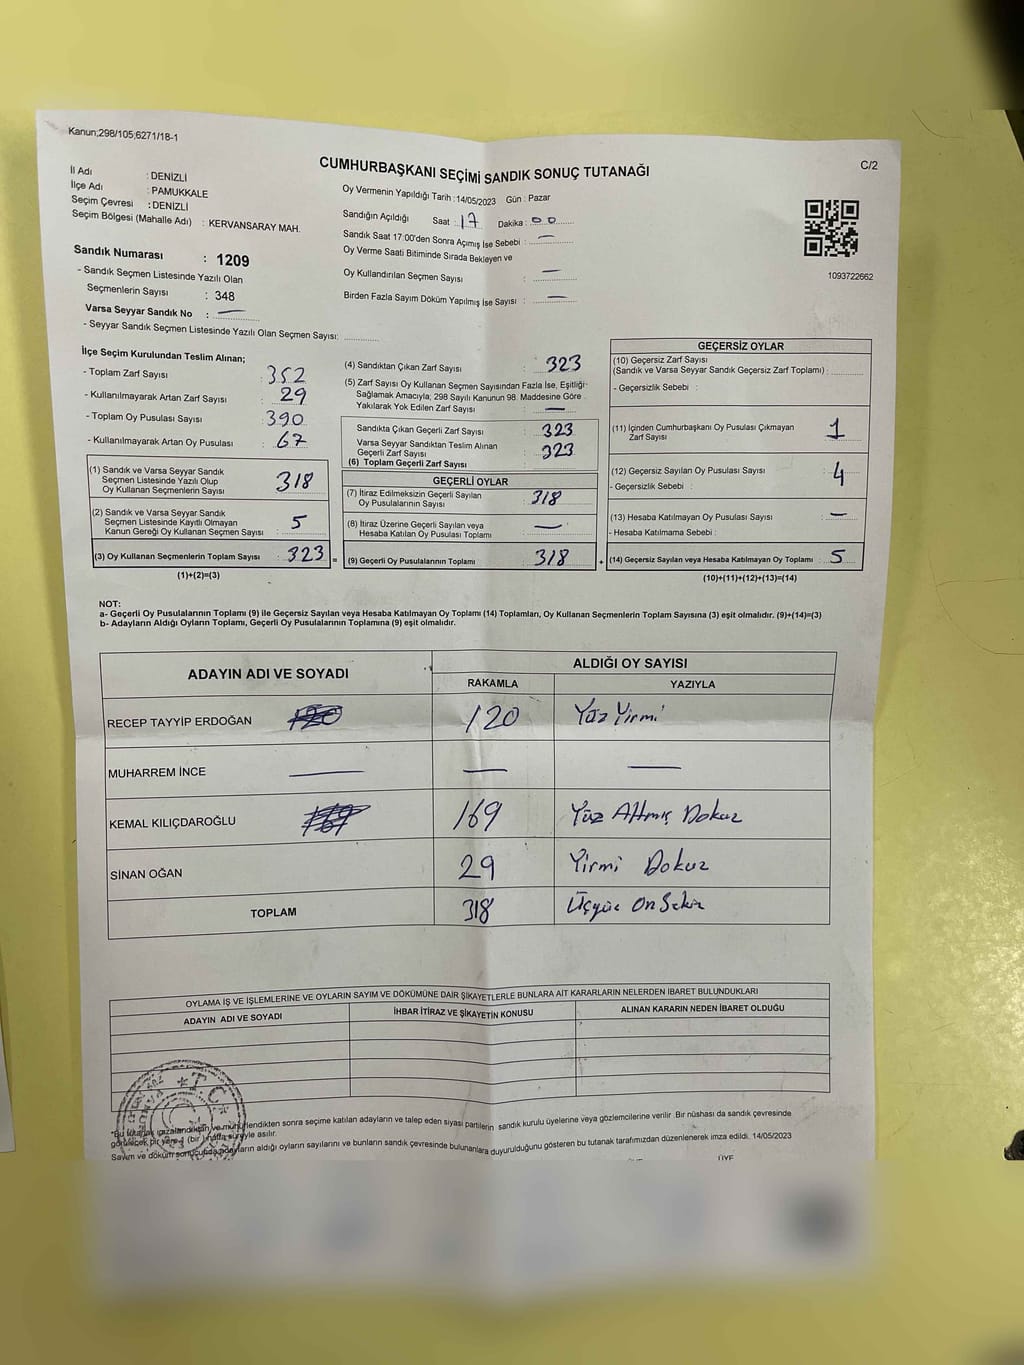 Kanun;298/105;6271/18-1
C/2
CUMHURBAŞKANI SEÇİMİ SANDIK SONUÇ TUTANAĞI
İl Adı : DENİZLİ
İlçe Adı : PAMUKKALE
Seçim Çevresi : DENİZLİ
Seçim Bölgesi (Mahalle Adı) : KERVANSARAY MAH.
Sandık Numarası : 1209
- Sandık Seçmen Listesinde Yazılı Olan
Seçmenlerin Sayısı : 348
Varsa Seyyar Sandık No : —
- Seyyar Sandık Seçmen Listesinde Yazılı Olan Seçmen Sayısı:
Oy Vermenin Yapıldığı Tarih : 14/05/2023 Gün : Pazar
Sandığın Açıldığı Saat : 17 Dakika : 00
Sandık Saat 17:00'den Sonra Açımış İse Sebebi : —
Oy Verme Saati Bitiminde Sırada Bekleyen ve
Oy Kullandırılan Seçmen Sayısı : —
Birden Fazla Sayım Döküm Yapılmış İse Sayısı : —
1093722662
İlçe Seçim Kurulundan Teslim Alınan;
- Toplam Zarf Sayısı : 352
- Kullanılmayarak Artan Zarf Sayısı : 29
- Toplam Oy Pusulası Sayısı : 390
- Kullanılmayarak Artan Oy Pusulası : 67
(1) Sandık ve Varsa Seyyar Sandık
Seçmen Listesinde Yazılı Olup
Oy Kullanan Seçmenlerin Sayısı : 318
(2) Sandık ve Varsa Seyyar Sandık
Seçmen Listesinde Kayıtlı Olmayan
Kanun Gereği Oy Kullanan Seçmen Sayısı : 5
(3) Oy Kullanan Seçmenlerin Toplam Sayısı : 323 =
(1)+(2)=(3)
(4) Sandıktan Çıkan Zarf Sayısı : 323
(5) Zarf Sayısı Oy Kullanan Seçmen Sayısından Fazla İse, Eşitliği
Sağlamak Amacıyla; 298 Sayılı Kanunun 98. Maddesine Göre
Yakılarak Yok Edilen Zarf Sayısı : —
Sandıkta Çıkan Geçerli Zarf Sayısı : 323
Varsa Seyyar Sandıktan Teslim Alınan
Geçerli Zarf Sayısı : 323
(6) Toplam Geçerli Zarf Sayısı
GEÇERLİ OYLAR
(7) İtiraz Edilmeksizin Geçerli Sayılan
Oy Pusulalarının Sayısı : 318
(8) İtiraz Üzerine Geçerli Sayılan veya
Hesaba Katılan Oy Pusulası Toplamı : —
(9) Geçerli Oy Pusulalarının Toplamı : 318 +
GEÇERSİZ OYLAR
(10) Geçersiz Zarf Sayısı
(Sandık ve Varsa Seyyar Sandık Geçersiz Zarf Toplamı) :
- Geçersizlik Sebebi :
(11) İçinden Cumhurbaşkanı Oy Pusulası Çıkmayan
Zarf Sayısı : 1
(12) Geçersiz Sayılan Oy Pusulası Sayısı : 4
- Geçersizlik Sebebi :
(13) Hesaba Katılmayan Oy Pusulası Sayısı : —
- Hesaba Katılmama Sebebi :
(14) Geçersiz Sayılan veya Hesaba Katılmayan Oy Toplamı : 5
(10)+(11)+(12)+(13)=(14)
NOT:
a- Geçerli Oy Pusulalarının Toplamı (9) ile Geçersiz Sayılan veya Hesaba Katılmayan Oy Toplamı (14) Toplamları, Oy Kullanan Seçmenlerin Toplam Sayısına (3) eşit olmalıdır. (9)+(14)=(3)
b- Adayların Aldığı Oyların Toplamı, Geçerli Oy Pusulalarının Toplamına (9) eşit olmalıdır.
ADAYIN ADI VE SOYADI
ALDIĞI OY SAYISI
RAKAMLA YAZIYLA
RECEP TAYYİP ERDOĞAN 120 120 Yüz Yirmi
MUHARREM İNCE — — —
KEMAL KILIÇDAROĞLU 169 169 Yüz Altmış Dokuz
SİNAN OĞAN 29 Yirmi Dokuz
TOPLAM 318 Üçyüz On Sekiz
OYLAMA İŞ VE İŞLEMLERİNE VE OYLARIN SAYIM VE DÖKÜMÜNE DAİR ŞİKAYETLERLE BUNLARA AİT KARARLARIN NELERDEN İBARET BULUNDUKLARI
ADAYIN ADI VE SOYADI İHBAR İTİRAZ VE ŞİKAYETİN KONUSU ALINAN KARARIN NEDEN İBARET OLDUĞU
T.C.
*Bu tutanak imzalandıktan ve mühürlendikten sonra seçime katılan adayların ve talep eden siyasi partilerin sandık kurulu üyelerine veya gözlemcilerine verilir. Bir nüshası da sandık çevresinde
görülecek bir yere 1 (bir) hafta süreyle asılır.
Sayım ve döküm sonucunda adayların aldığı oyların sayılarını ve bunların sandık çevresinde bulunanlara duyurulduğunu gösteren bu tutanak tarafımızdan düzenlenerek imza edildi. 14/05/2023
ÜYE